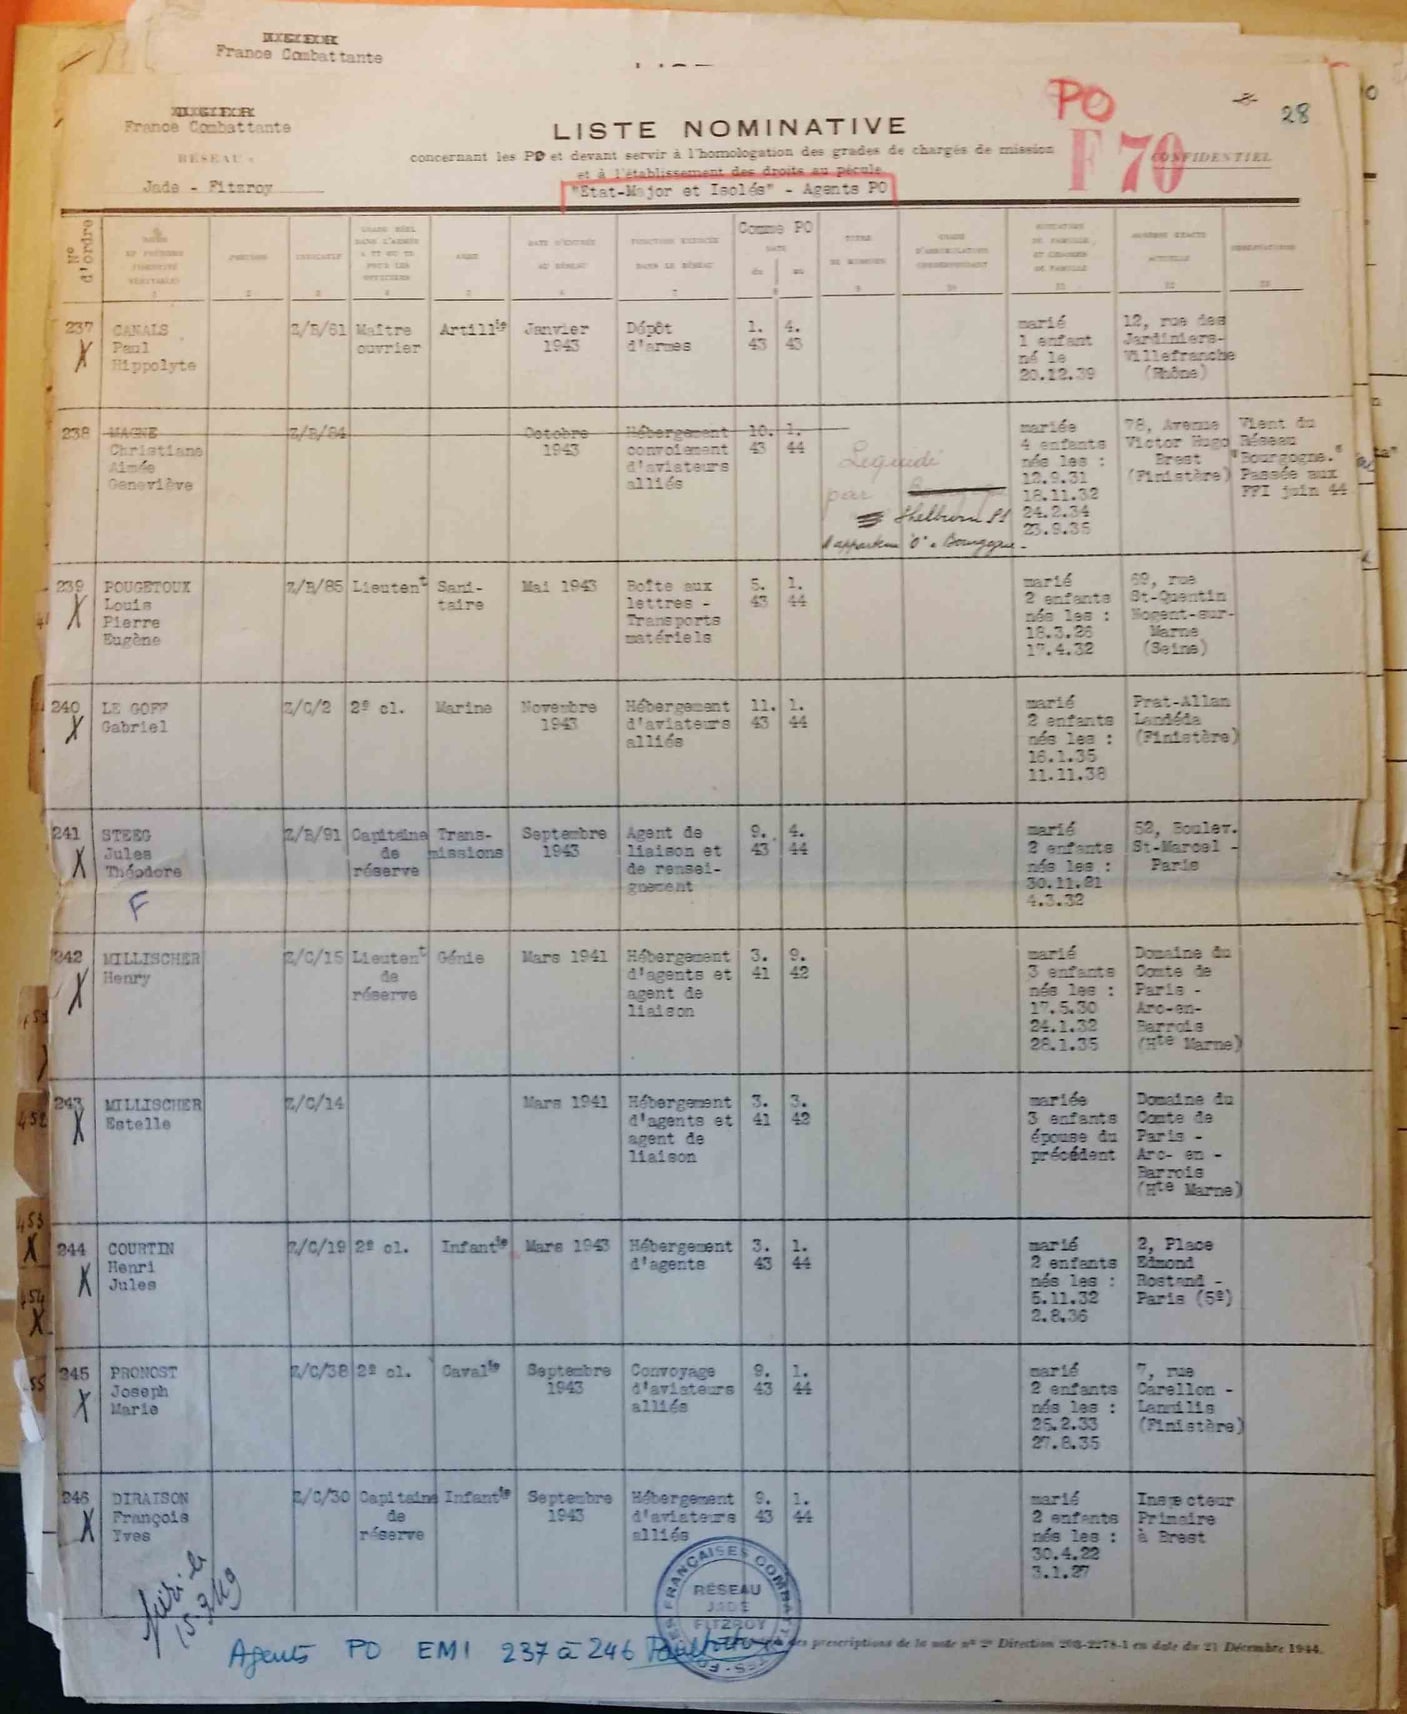 France Combattante
France Combattante
RÉSEAU :
Jade - Fitzroy
PO
-8-
28
LISTE NOMINATIVE
concernant les PO et devant servir à l'homologation des grades de chargés de mission
et à l'établissement des droits au pécule
"Etat-Major et Isolés" - Agents PO
F 70
CONFIDENTIEL
No d'ordre
GRADE RÉEL
DANS L'ARMÉE
POUR LES
OFFICIERS
ARME
DATE D'ENTRÉE
AU RÉSEAU
FONCTION EXERCÉE
DANS LE RÉSEAU
Comme PO
DATE
du
au
TITRE
DE MISSION
GRADE
D'ASSIMILATION
CORRESPONDANT
SITUATION
DE FAMILLE
ET CHARGES
DE FAMILLE
ADRESSE EXACTE
ACTUELLE
OBSERVATIONS
237
X
CANALS
Paul
Hippolyte
Z/B/61
Maître
ouvrier
Artillie
Janvier
1943
Dépôt
d'armes
1.
43
4.
43
marié
1 enfant
né le
20.12.39
12, rue des
Jardiniers-
Villefranche
(Rhône)
238
MAGNE
Christiane
Aimée
Geneviève
Z/B/84
Octobre
1943
Hébergement
convoiement
d'aviateurs
alliés
10.
43
1.
44
Liquidé
par
Shelburn
Bourgogne
mariée
4 enfants
nés les :
12.9.31
18.11.32
24.2.34
23.9.35
78, Avenue
Victor Hugo
Brest
(Finistère)
Vient du
Réseau
"Bourgogne."
Passée aux
FFI juin 44
239
X
POUGETOUX
Louis
Pierre
Eugène
Z/B/85
Lieutent
Sani-
taire
Mai 1943
Boîte aux
lettres -
Transports
matériels
5.
43
1.
44
marié
2 enfants
nés les :
18.3.26
17.4.32
69, rue
St-Quentin
Nogent-sur-
Marne
(Seine)
240
X
LE GOFF
Gabriel
Z/C/2
2e cl.
Marine
Novembre
1943
Hébergement
d'aviateurs
alliés
11.
43
1.
44
marié
2 enfants
nés les :
16.1.35
11.11.38
Prat-Allan
Landéda
(Finistère)
241
X
STEEG
Jules
Théodore
F
Z/B/91
Capitaine
de
réserve
Trans-
missions
Septembre
1943
Agent de
liaison et
de rensei-
gnement
9.
43
4.
44
marié
2 enfants
nés les :
30.11.21
4.3.32
52, Boulev.
St-Marcel -
Paris
242
X
MILLISCHER
Henry
Z/C/15
Lieutent
de
réserve
Génie
Mars 1941
Hébergement
d'agents et
agent de
liaison
3.
41
9.
42
marié
3 enfants
nés les :
17.5.30
24.1.32
28.1.35
Domaine du
Comte de
Paris -
Arc-en-
Barrois
(Hte Marne)
243
X
MILLISCHER
Estelle
Z/C/14
Mars 1941
Hébergement
d'agents et
agent de
liaison
3.
41
3.
42
mariée
3 enfants
épouse du
précédent
Domaine du
Comte de
Paris -
Arc- en -
Barrois
(Hte Marne)
244
X
COURTIN
Henri
Jules
Z/C/19
2e cl.
Infantie
Mars 1943
Hébergement
d'agents
3.
43
1.
44
marié
2 enfants
nés les :
5.11.32
2.8.36
2, Place
Edmond
Rostand -
Paris (5e)
245
X
PRONOST
Joseph
Marie
Z/C/38
2e cl.
Cavalie
Septembre
1943
Convoyage
d'aviateurs
alliés
9.
43
1.
44
marié
2 enfants
nés les :
25.2.33
27.8.35
7, rue
Carellon -
Lannilis
(Finistère)
246
X
DIRAISON
François
Yves
Z/C/30
Capitaine
de
réserve
Infantie
Septembre
1943
Hébergement
d'aviateurs
alliés
9.
43
1.
44
marié
2 enfants
nés les :
30.4.22
3.1.27
Inspecteur
Primaire
à Brest
452
453
X
454
X
55
FRANÇAISES
RÉSEAU
JADE
FITZROY
Agents PO EMI 237 à 246
des prescriptions de la note no 2e Direction 208-2278-1 en date du 21 Décembre 1944.